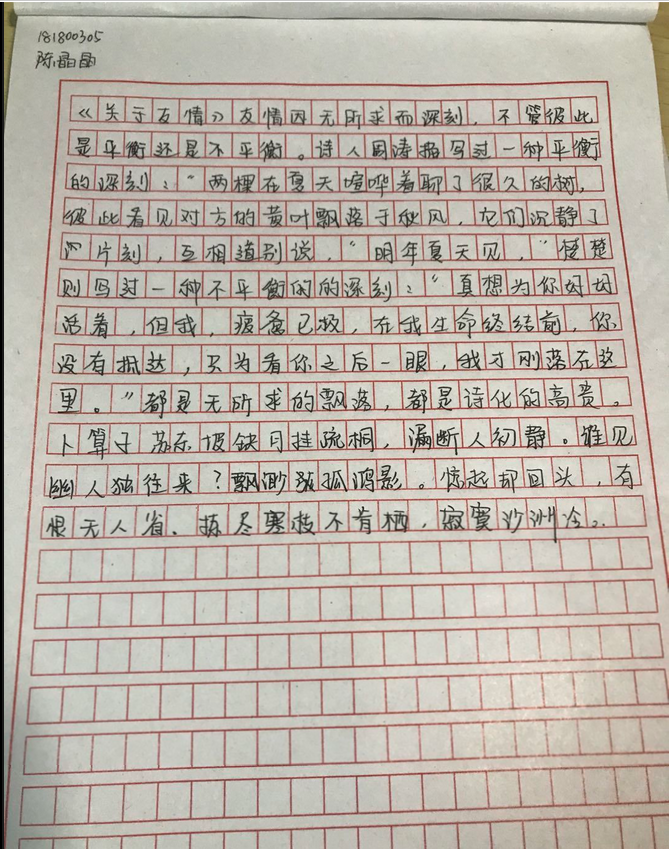 181800305
陈晶晶
《关于友情》友情因无所求而深刻，不管彼此
是平衡还是不平衡。诗人周涛描写过一种平衡
的深刻："两棵在夏天喧哗着聊了很久的树，
彼此看见对方的黄叶飘落于秋风，它们沉静了
片刻，互相道别说，"明年夏天见，"楚楚
则写过一种不平衡的的深刻："真想为你好好
活着，但我，疲惫已极，在我生命终结前，你
没有抵达，只为看你之后一眼，我才刚落在这
里。"都是无所求的飘落，都是诗化的高贵。
卜算子 苏东坡缺月挂疏桐，漏断人初静。谁见
幽人独往来？飘渺孤鸿影。惊起却回头，有
恨无人省、拣尽寒枝不肯栖，寂寞沙洲冷。